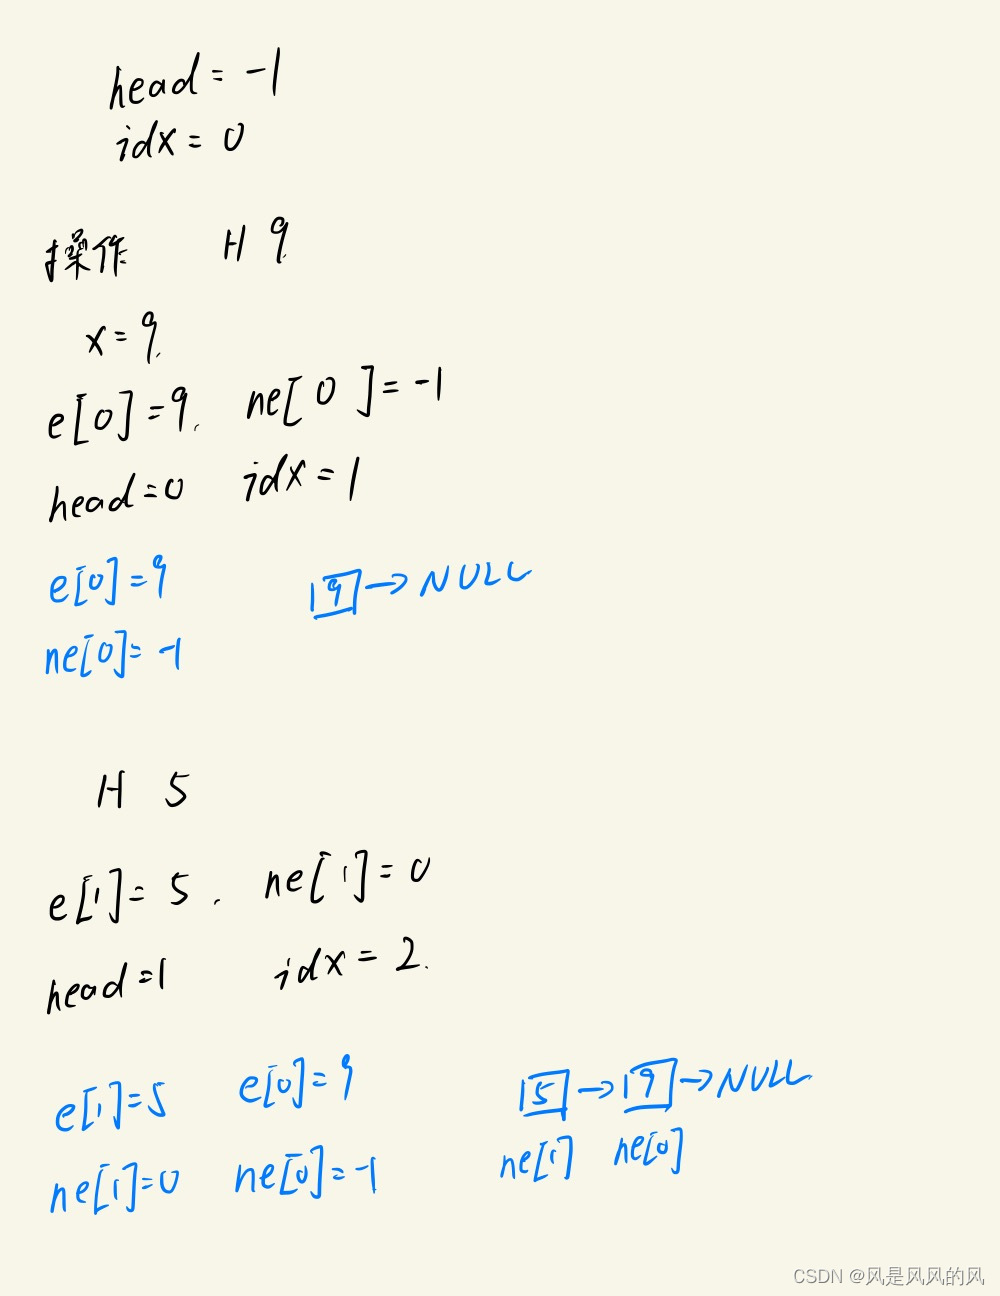 head = -1
idx = 0
操作 H 9
x = 9.
e[0] = 9. ne[0] = -1
head = 0 idx = 1
e[0] = 9 9 → NULL
ne[0] = -1
H 5
e[1] = 5. ne[1] = 0
head = 1 idx = 2.
e[1] = 5 e[0] = 9 5 → 9 → NULL
ne[1] = 0 ne[0] = -1 ne[1] ne[0]
CSDN @风是风风的风